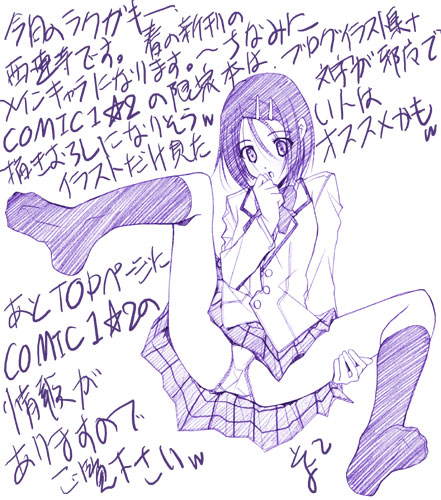 今日のラクガキー
西連寺です。春の新刊の
メインキャラになります。〜ちなみに
COMIC1☆2の限定本は、ブログイラスト集+
描きおろしになりそうw
イラストだけ見た
いトは
文字が邪魔で
オススメかも
w
あとTOPページに
COMIC1☆2の
情報が
ありますので
ご覧下さいw